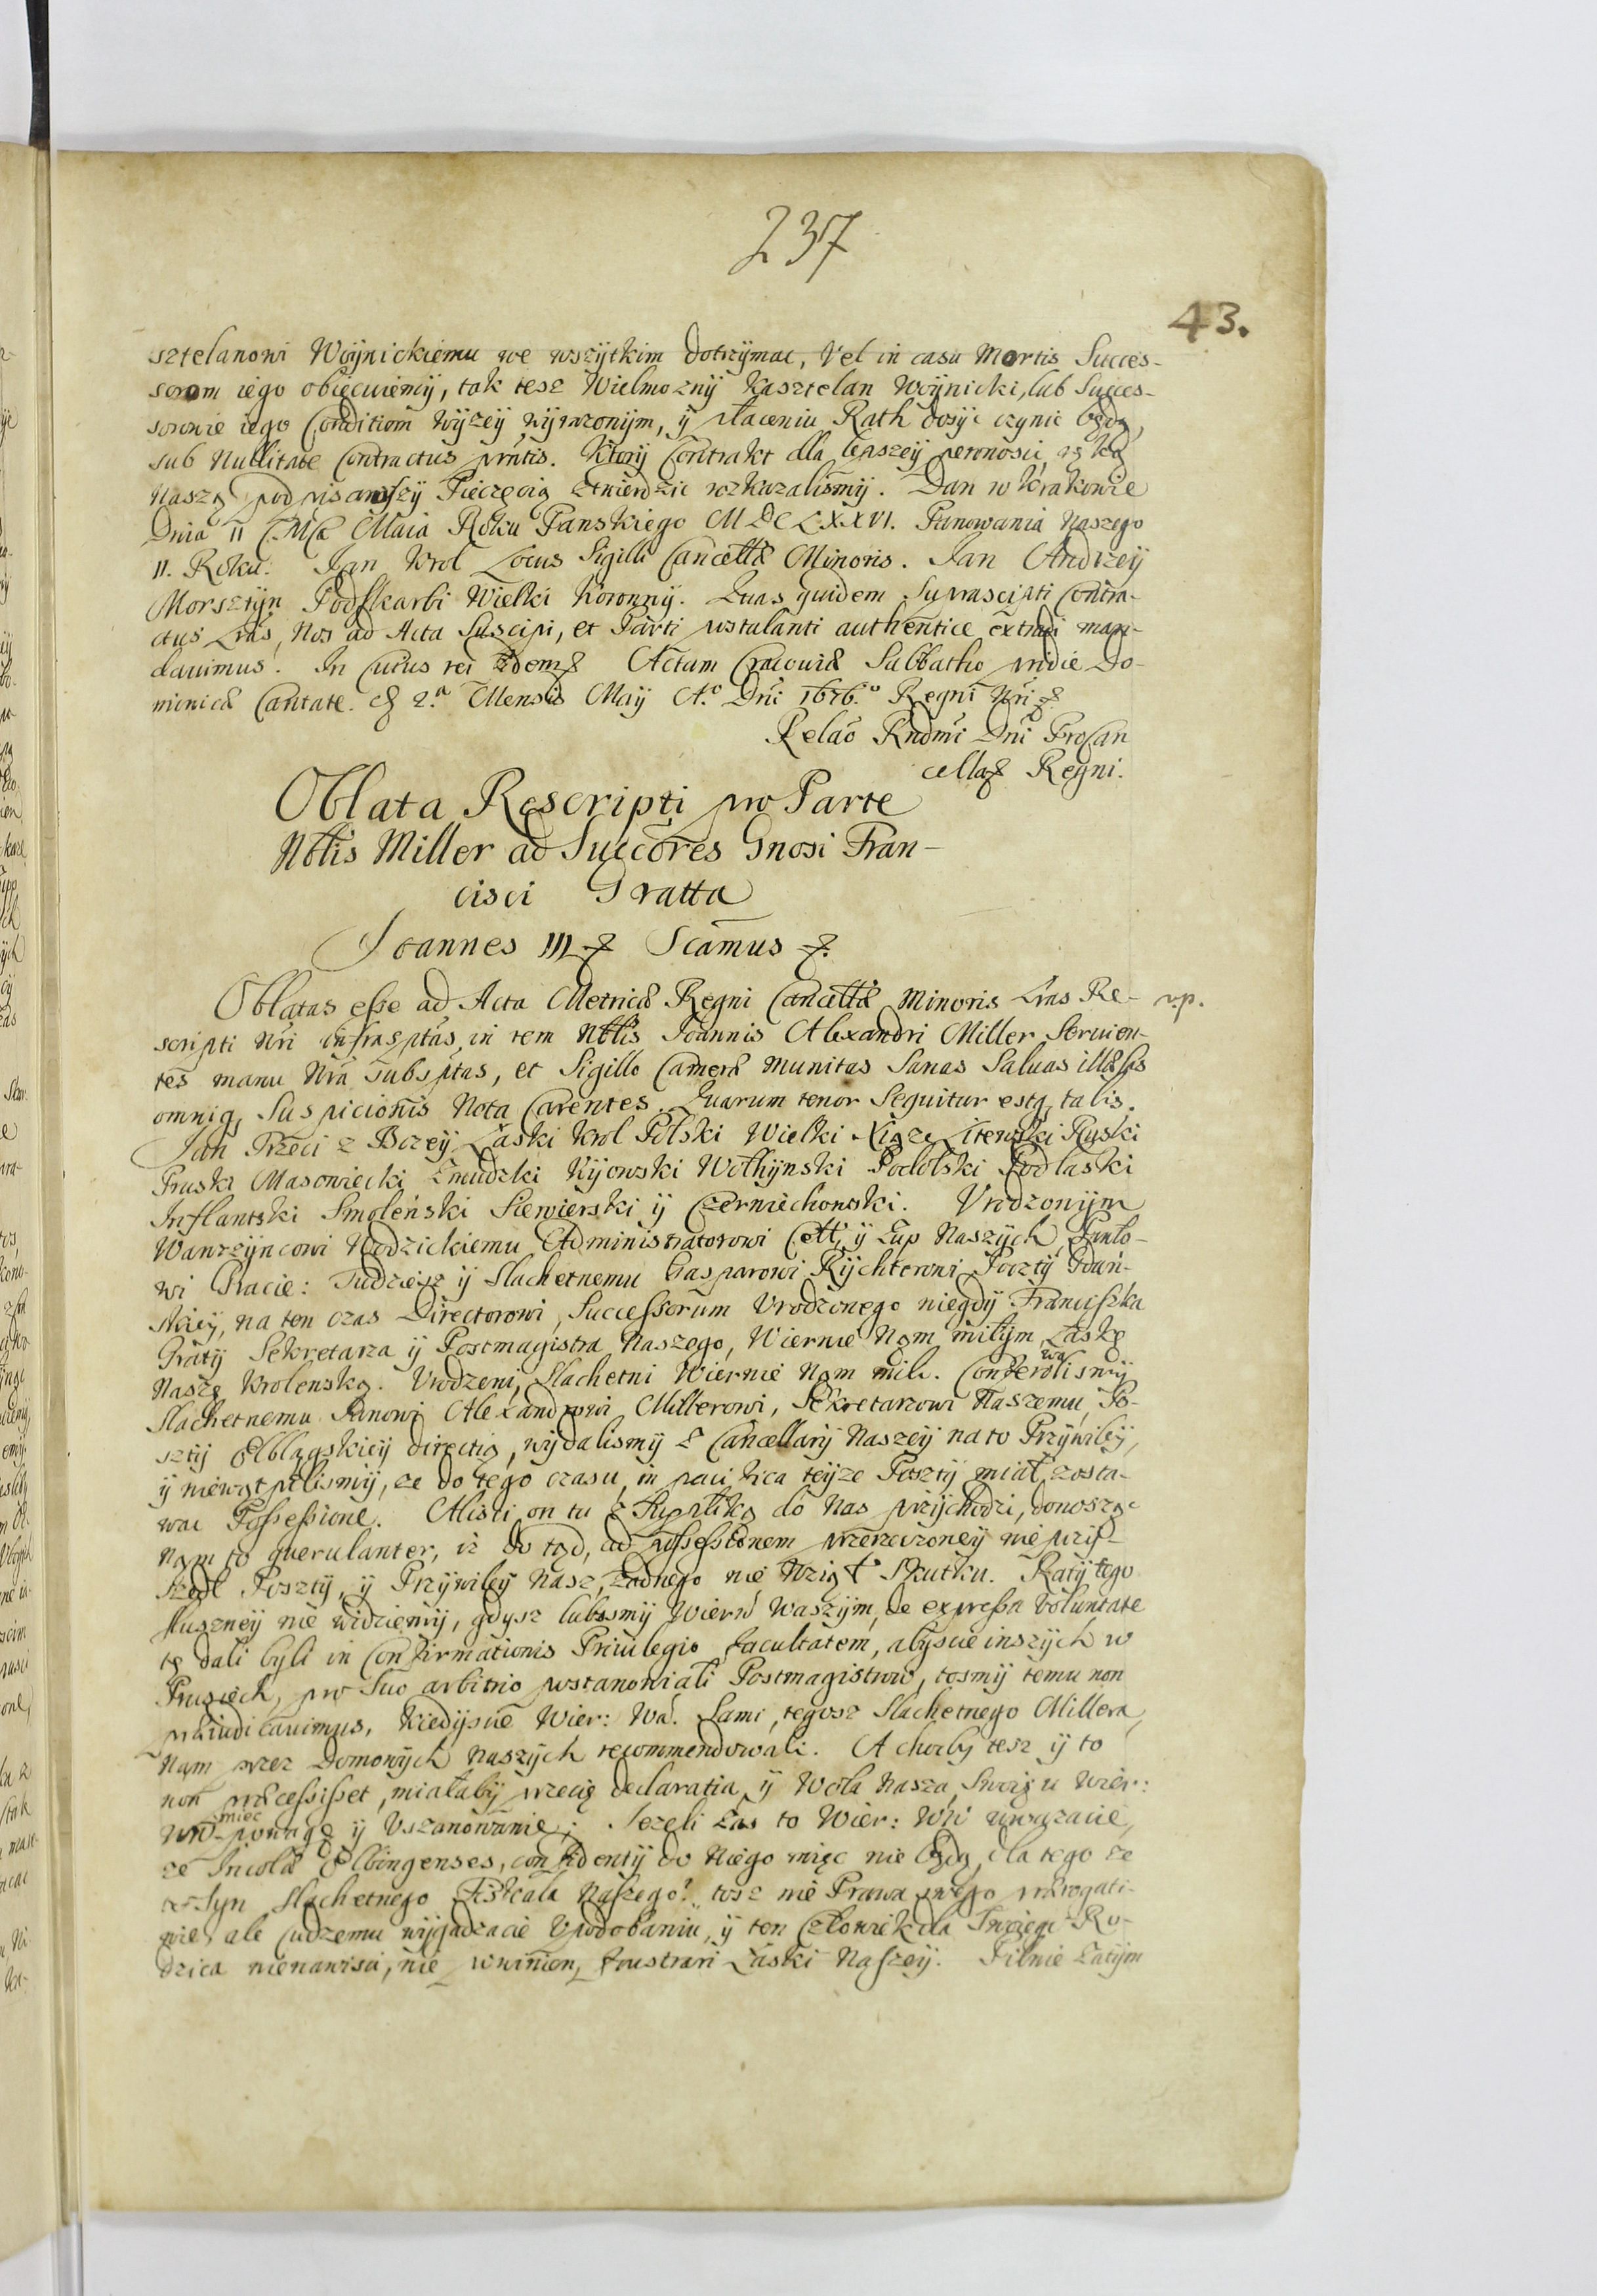 237
43.
sztelanowi Woÿnickiemu we wszÿtkim dotrzÿmac, Vel in casu Mortis Succes-
sorom iego obiecuiemÿ, tak tesz Wielmoznÿ Kasztelan Woÿnicki, lub Succes-
sorowie iego Conditiom wÿzeÿ wÿrazonÿm, ÿ płaceniu Rath dosÿc czynic będą,
sub Nullitate Contractus pñtis. Ktorÿ Contrakt dla lepszeÿ pewnosci, ręką
naszą podpisawszÿ Pieczęcią ztwierdzic rozkazalismÿ. Dan w Krakowie
Dnia II Maia Roku Panskiego MDCLXXVI. Panowania Naszego
II. Roku. Jan Krol Locus Sigilli Cancellæ Minoris. Jan Andrzeÿ
Morsztÿn Podskarbi Wielki Koronnÿ. Quas quidem Suprascripti Contra-
ctus Lras, Nos ad Acta Suscipi, et Parti postulanti authentice extradi man-
dauimus. In Cuius rei fidem Actum Cracouiæ Sabbatho pridie Do-
minicæ Cantate. 2.a Mensis Maÿ Ao. Dni 1676.o Regni Nri
Relao Rndmi Dni ProCan
cellar Regni.
Oblata Rescripti pro Parte
Nblis Miller ad Succores Gnosi Fran-
cisci Gratta
Joannes III Scamus
Oblatas esse ad Acta Metricæ Regni Cancellæ Minoris Lras Re- v.p.
scripti Nri infrasptas, in rem Nblis Joannis Alexandri Miller Seruien-
tes manu Nra subsptas, et Sigillo Cameræ munitas Sanas Saluas illæsas
omniq, Suspicionis Nota Carentes. Quarum tenor Sequitur estq, talis.
Jan Trzeci z Bozeÿ Łaski Krol Polski Wielki Xiąze Litewski Ruski
Pruski Masowiecki Zmudzki Kijowski Wołhÿnski Podolski Podlaski
Inflantski Smoleński Siewierski ÿ Czerniechowski. Vrodzonÿm
Wawrzÿncowi Wodzickiemu Administratorowi Cełł, ÿ Zup Naszÿch, Pawło-
wi Gracie: Tudziesz ÿ Slachetnemu Gasparowi Rÿchterowi Poztÿ Gdań-
skieÿ, na ten czas Directorowi, Successorum Vrodzonego niegdÿ Franciszka
Gratÿ Sekretarza ÿ Postmagistra Naszego, Wiernie Nam miłÿm, Łaskę
Naszę Krolewską. Vrodzeni, Slachetni Wiernie Nam mili. Conferowalismÿ
Slachetnemu Panowi Alexandrowi Millerowi, Sekretarzowi Naszemu, Po-
sztÿ Elbląskieÿ directią, wÿdalismÿ z Cancellarÿ Naszeÿ na to Przÿwileÿ,
ÿ niewątpilismÿ, ze do tego czasu, in pacifica teÿze Posztÿ miał zosta-
wac Possessione. Alisci on tu z Suppliką do Nas przÿchodzi, donosząc
Nam to querulanter, iz do tąd, ad possessionem przerzeczoneÿ nie przÿs-
szedł Posztÿ, ÿ Przÿwileÿ Nasz, zadnego nie wziął Skutku. Ratÿ tego
słuszneÿ nie widziemÿ, gdysz lubosmÿ Wierń Waszÿm, de expressa Voluntate
tę dali byli in Confirmationis Priuilegio facultatem, abÿscie inszÿch w
Prusiech, pro Suo arbitrio postanowiali Postmagistrow, tosmÿ temu non
præiudicauimus, kiedÿscie Wier: Wa. Sami, tegosz Slachetnego Millera,
Nam przez Domowÿch Naszÿch recommendowali. A chocby tesz ÿ to
non præcessisset, miałabÿ przecię declaratia ÿ Wola Nasza, Swoię u Wier:
WW miec powagę ÿ Vszanowanie; Jezeli zas to Wier: WW uwazacie,
ze Incolæ Elbingenses, confidentÿ do Niego mięc nie będą, dla tego ze
to Syn Slachetnego Fiskala Naszego? tosz nie Prawa swego prærogati-
wie, ale cudzemu wÿgadzacie Vpodobaniu, ÿ ten Człowiek dla Swoiego Ro-
dzica nienawisci, nie winien, frustrari Łaski Naszeÿ. Pilnie Zatÿm